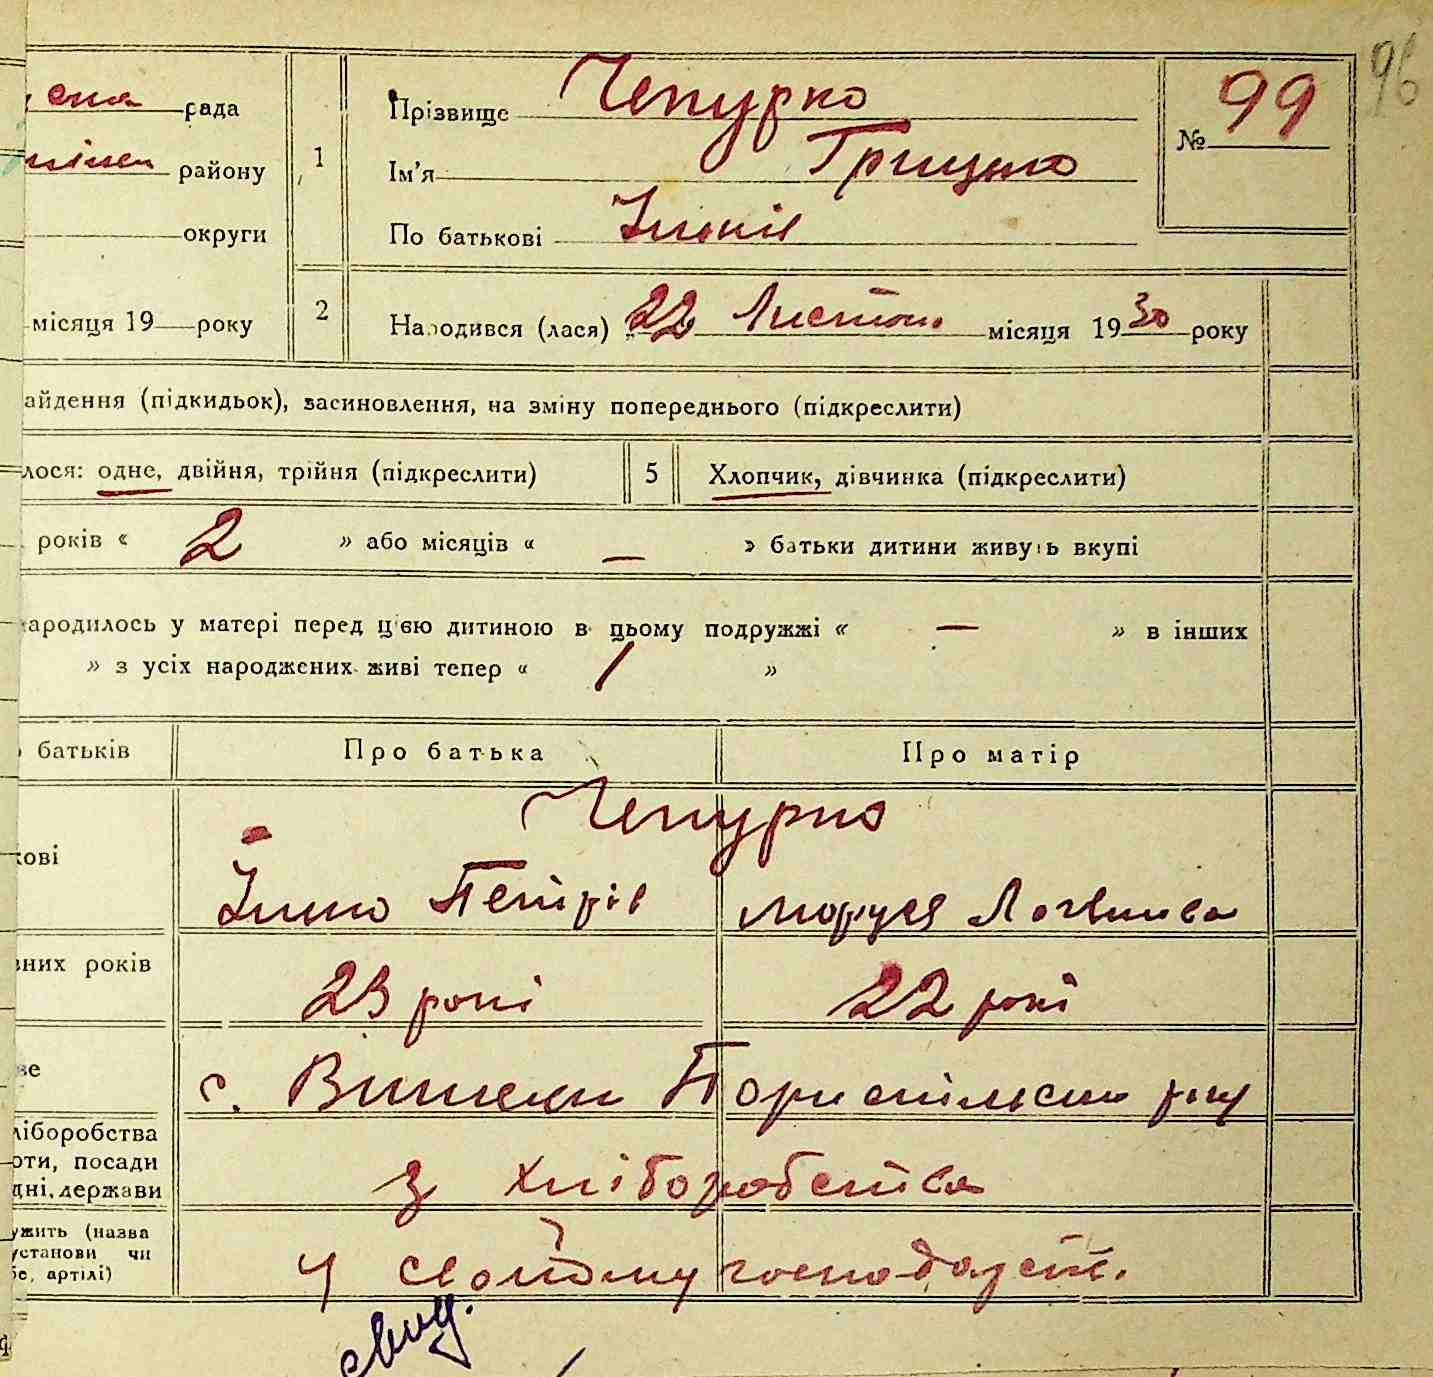 96
рада
Прізвище Чепурко
№ 99
району
1
Ім'я Грицько
округи
По батькові
місяця 19 року
2
Народився (лася) „22 Листоп. місяця 1930 року
айдення (підкидьок), засиновлення, на зміну попереднього (підкреслити)
лося: одне, двійня, трійня (підкреслити)
5
Хлопчик, дівчинка (підкреслити)
років « 2 » або місяців « — » батьки дитини живуть вкупі
ародилось у матері перед ц'єю дитиною в цьому подружжі « — » в інших
» з усіх народжених живі тепер « 1 »
батьків
Про батька
Про матір
Чепурко
кові
Петрів
Маруся Логвинова
вних років
23 рокі
22 рокі
ве
с. Вишеньки Бориспільськ. р-ну
ліборобства
оти, посади
дні, держави
з хліборобства
ужить (назва
установи чи
бс, артілі)
у свойому господарст.